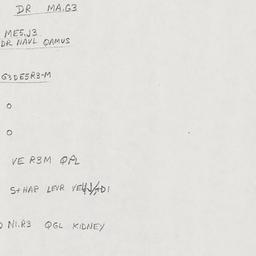 DR MA.G3
MES.J3
DR NAUL QAMUS
G3DE5R3-M
O
O
VE R3M QPL
S+HAP LEVR
NI.R3 QGL KIDNEY